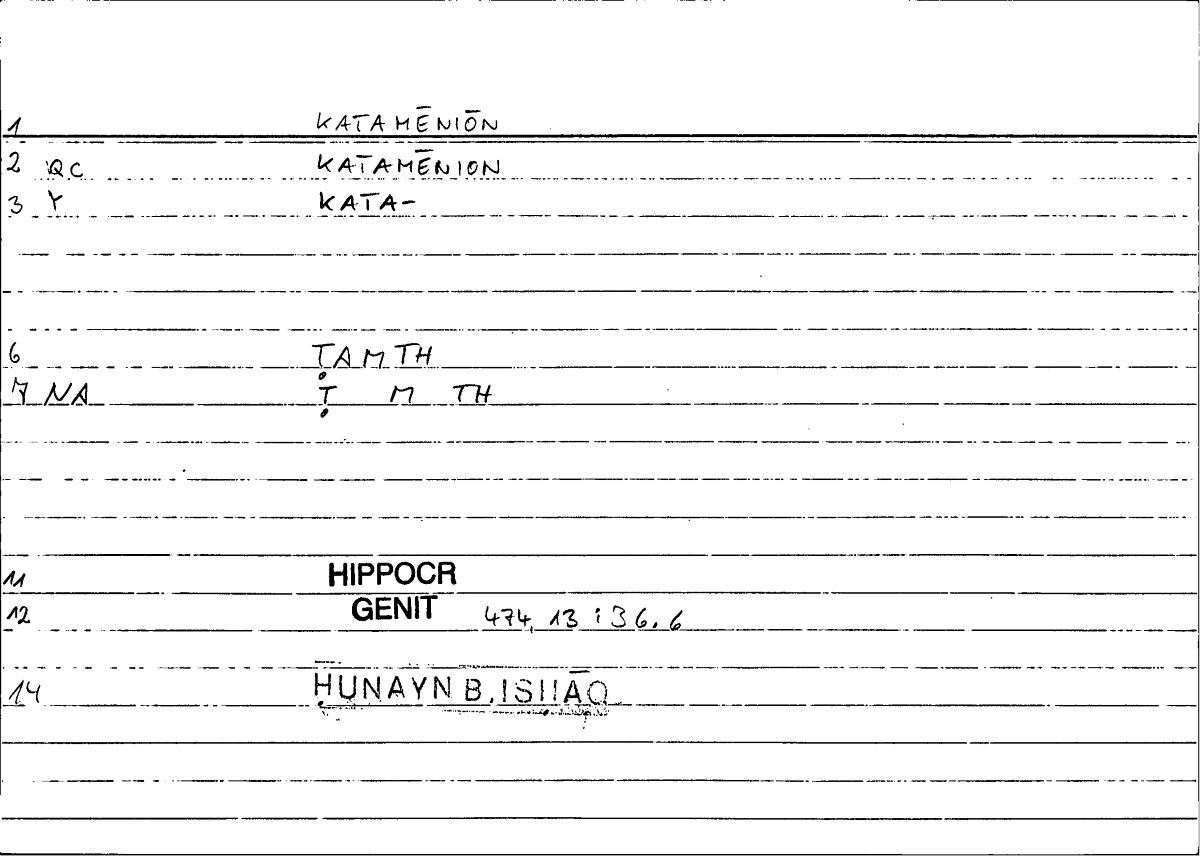 1 KATAMĒNIŌN
2 QC KATAMĒNION
3 Y KATA-
6 ṬAMTH
7 NA Ṭ M TH
11 HIPPOCR
12 GENIT 474, 13 : 36.6
14 ḤUNAYN B. ISḤĀQ